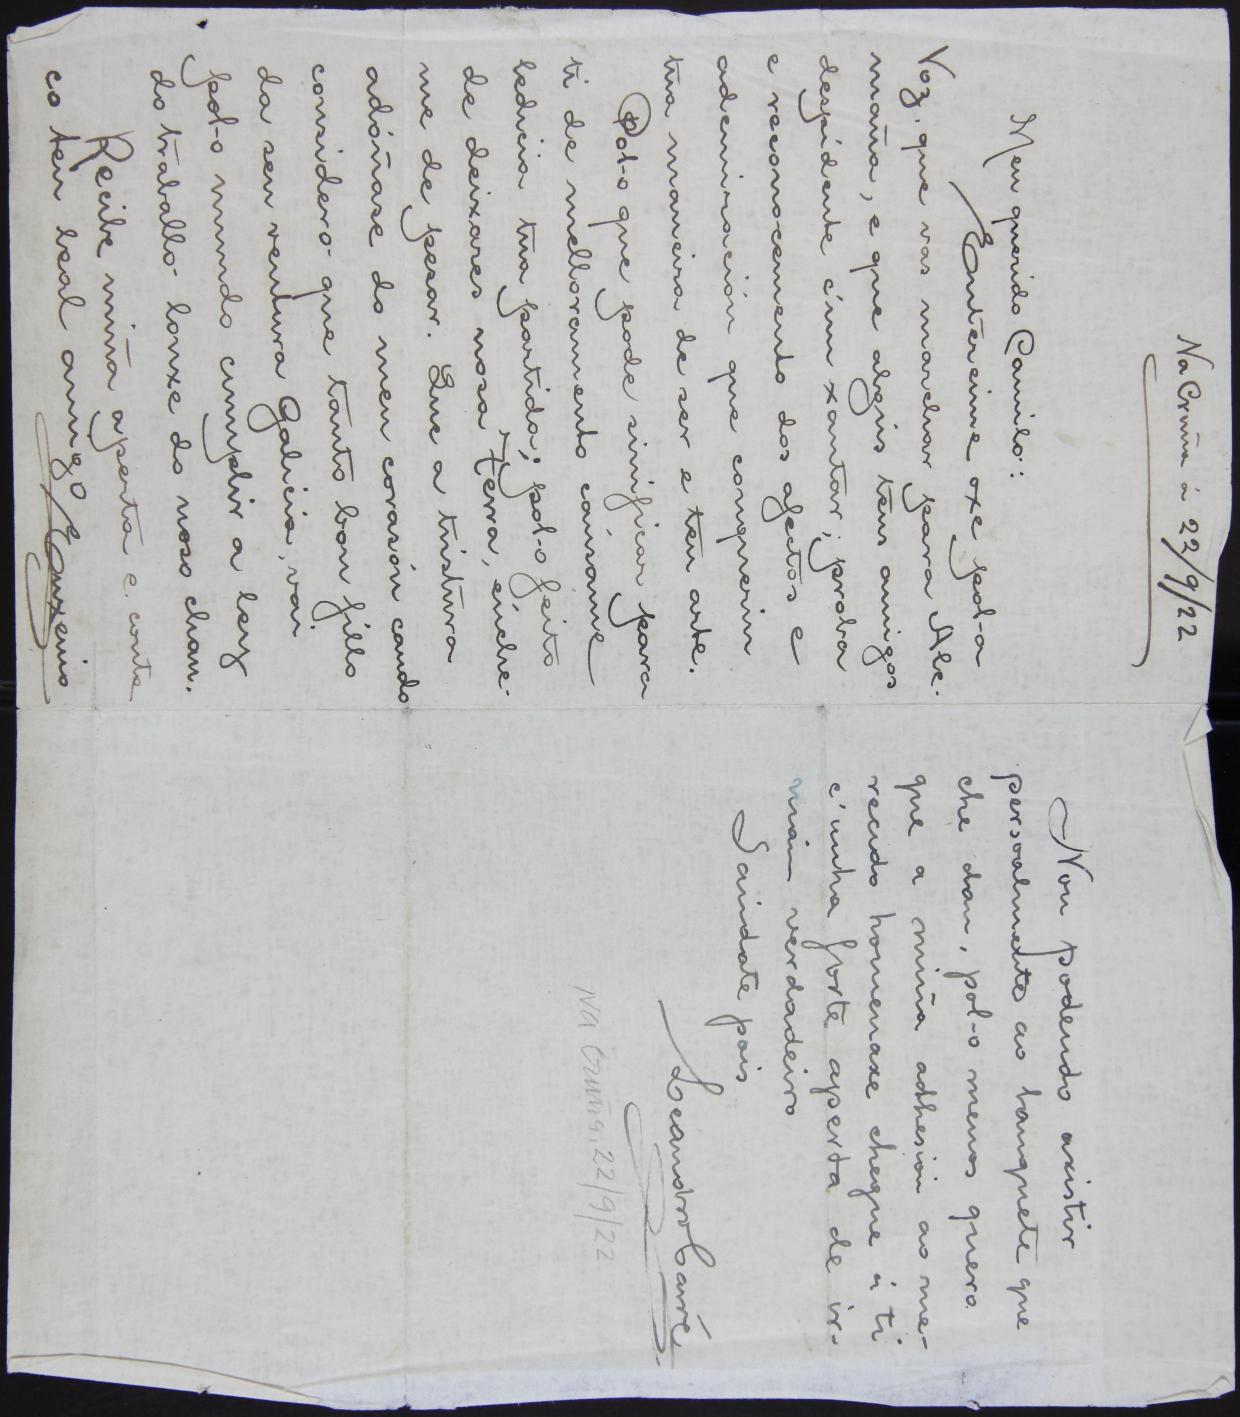 Na Cruña á 22/9/22
Meu querido Camilo:
Entereime oxe pol-a
Voz. que vas marchar para Ale-
maña, e que algús teus amigos
despídente c'un xantar; proba
e reconocemento dos afeitos e
ademiración que conquerin
tua maneira de ser e teu arte.
Pol-o que pode sinificar para
ti de melloramento cáusame
ledicia tua partida; pol-o feito
de deixares nosa terra, énche-
me de pesar. Que a tristura
adóñase do meu corasón cando
considero que tanto bon fillo
da sen ventura Galicia, vai
pol-o mundo cumplir a ley
do traballo lonxe do noso chan.
Recibe miña aperta e conta
co teu leal amigo
Euxenio
Non podendo asistir
persoalmente ao banquete que
che dan, pol-o menos quero
que a miña adhesion ao me-
recido homenaxe chegue á ti
c'unha forte aperta de ir-
main verdadeiro
Saúdate pois
Leandro Carré
Na Cruña, 22/9/22